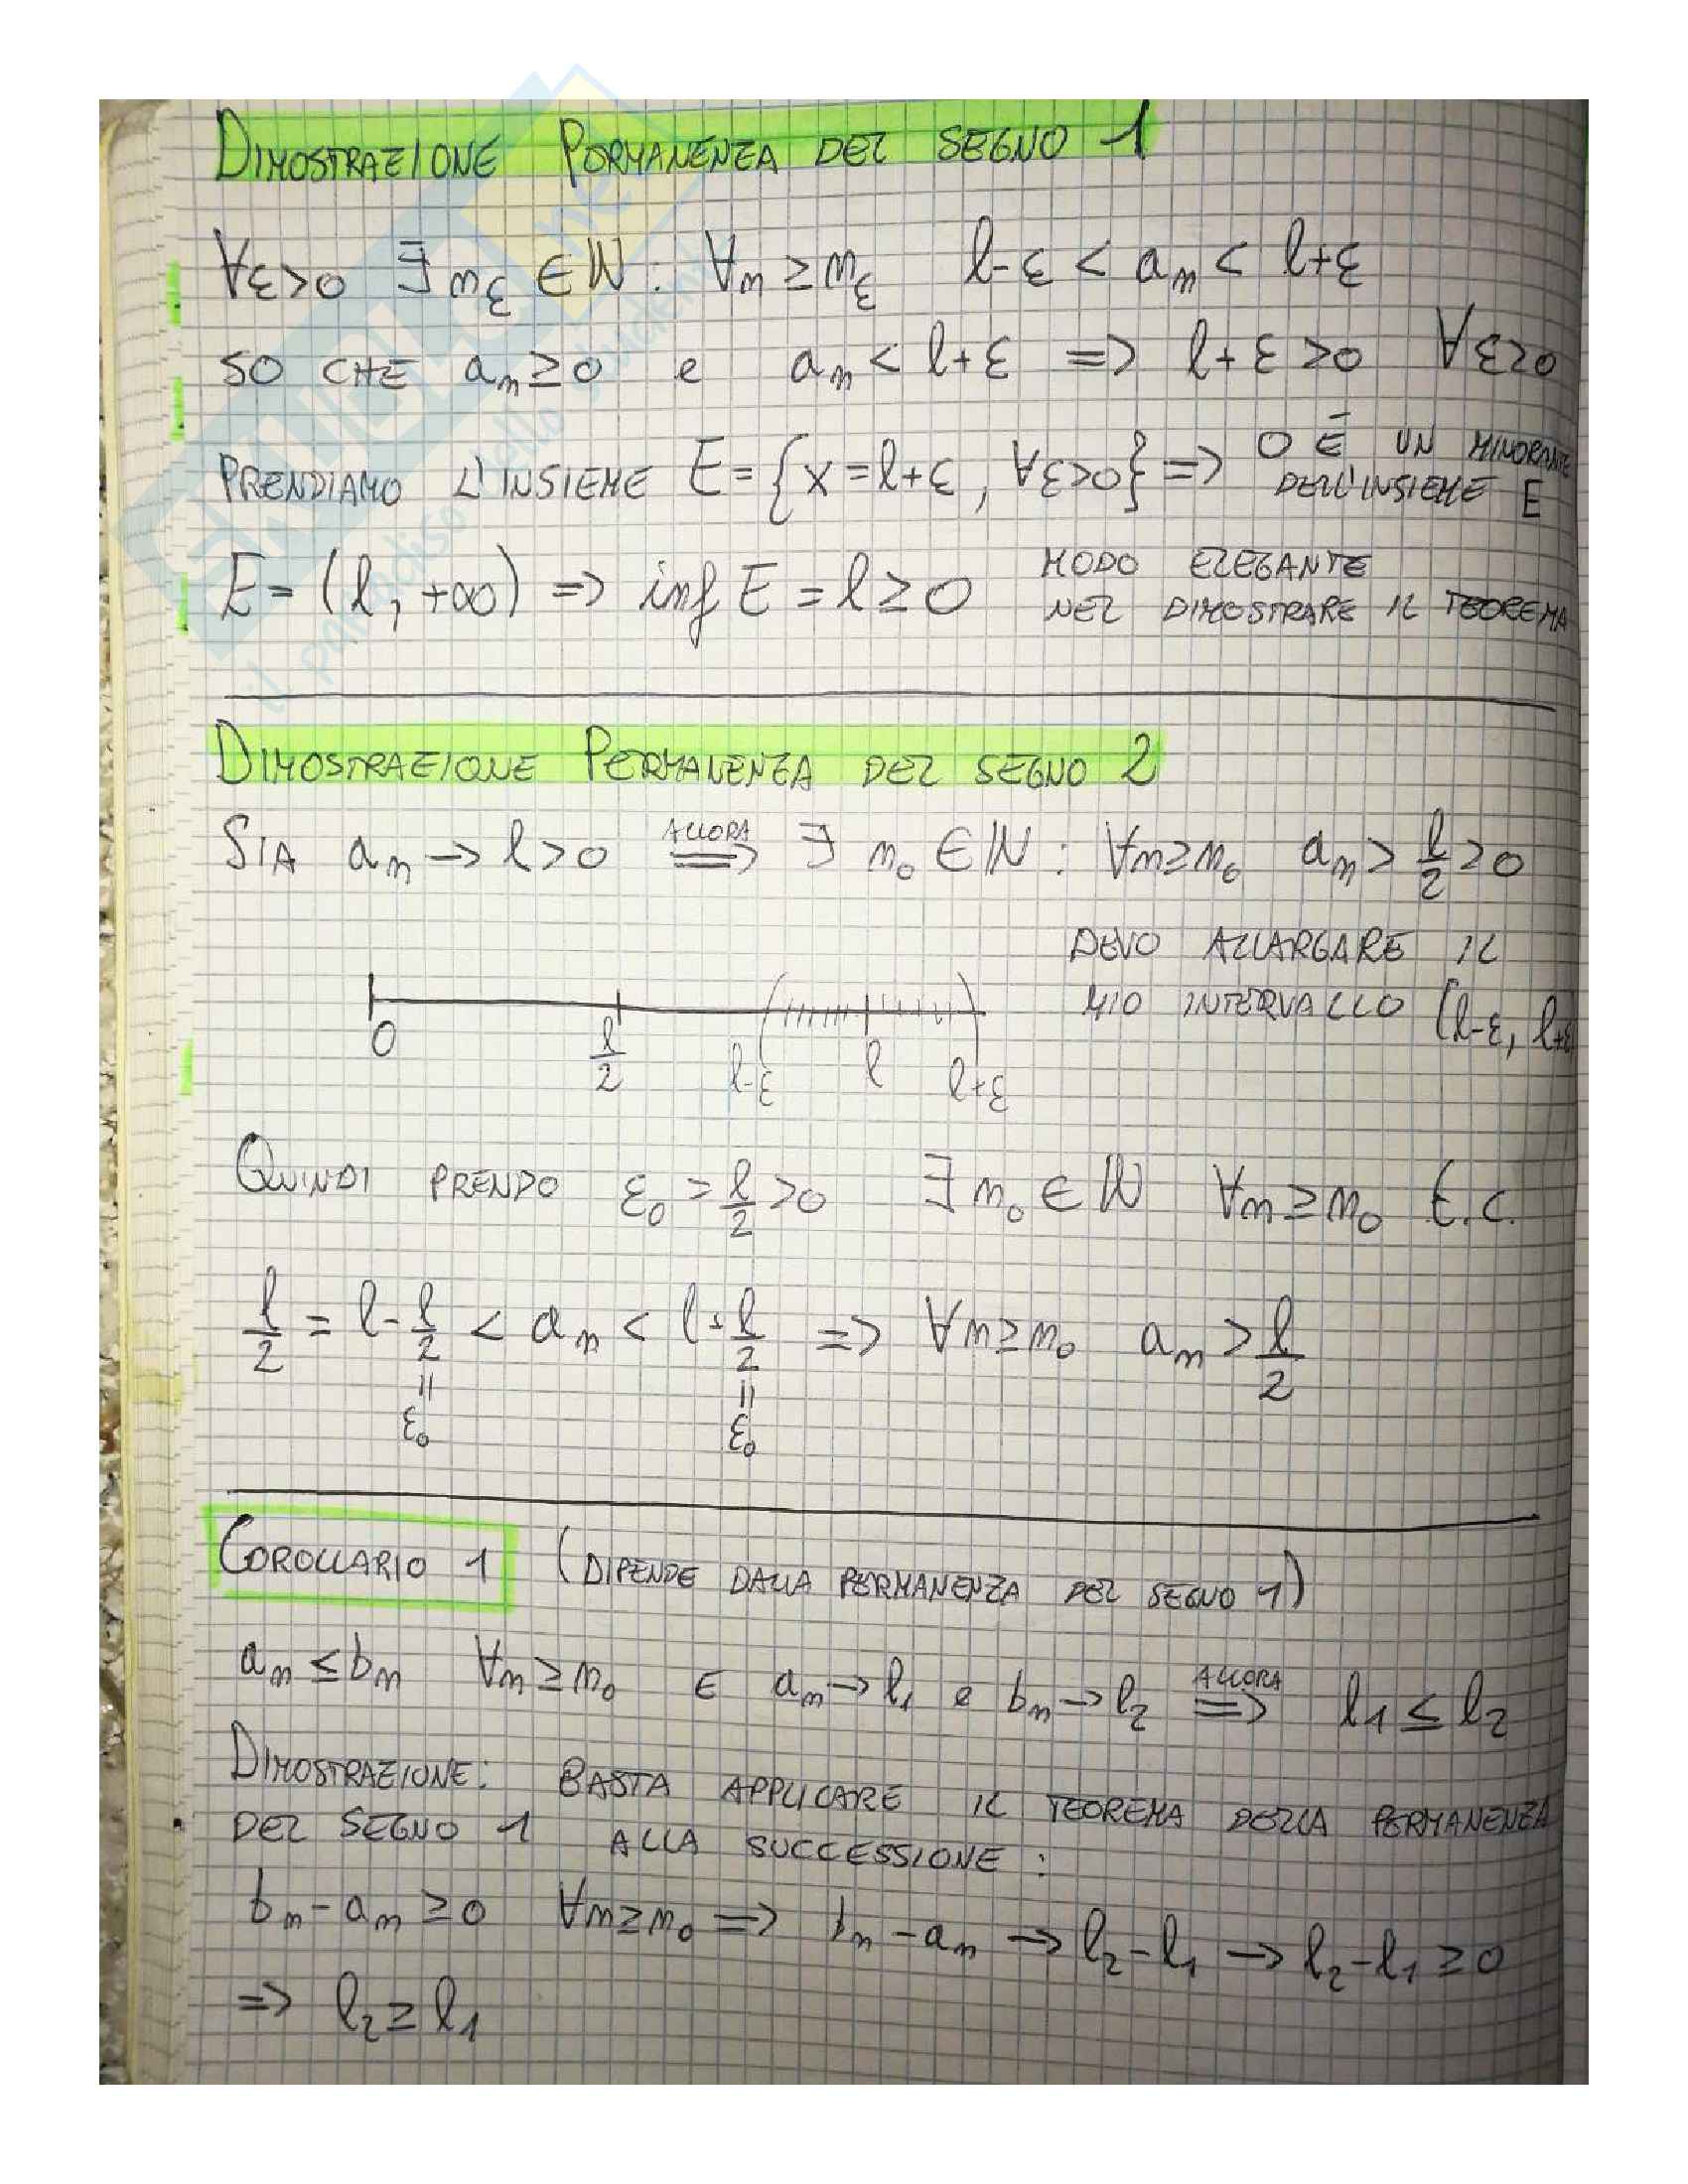 DIMOSTRAZIONE PORMANENZA DEL SEGNO 1
∀ε>0 ∃ n_ε ∈ ℕ : ∀n ≥ n_ε l-ε < a_n < l+ε
SO CHE a_n ≥ 0 e a_n < l+ε => l+ε > 0 ∀ε>0
PRENDIAMO L'INSIEME E = {x = l+ε, ∀ε>0} => 0 È UN MINORANTE DELL'INSIEME E
E = (l, +∞) => inf E = l ≥ 0 MODO ELEGANTE
NEL DIMOSTRARE IL TEOREMA
DIMOSTRAZIONE PERMANENZA DEL SEGNO 2
SIA a_n → l > 0 ALLORA => ∃ n_0 ∈ ℕ : ∀n ≥ n_0 a_n > l/2 > 0
DEVO ALLARGARE IL
MIO INTERVALLO (l-ε, l+ε)
0 l/2 l-ε l l+ε
QUINDI PRENDO ε_0 = l/2 > 0 ∃ n_0 ∈ ℕ ∀n ≥ n_0 t.c.
l/2 = l - l/2 < a_n < l + l/2 => ∀n ≥ n_0 a_n > l/2
= =
ε_0 ε_0
COROLLARIO 1 (DIPENDE DALLA PERMANENZA DEL SEGNO 1)
a_n ≤ b_n ∀n ≥ n_0 E a_n → l_1 e b_n → l_2 ALLORA => l_1 ≤ l_2
DIMOSTRAZIONE: BASTA APPLICARE IL TEOREMA DELLA PERMANENZA
DEL SEGNO 1 ALLA SUCCESSIONE :
b_n - a_n ≥ 0 ∀n ≥ n_0 => b_n - a_n → l_2 - l_1 → l_2 - l_1 ≥ 0
=> l_2 ≥ l_1